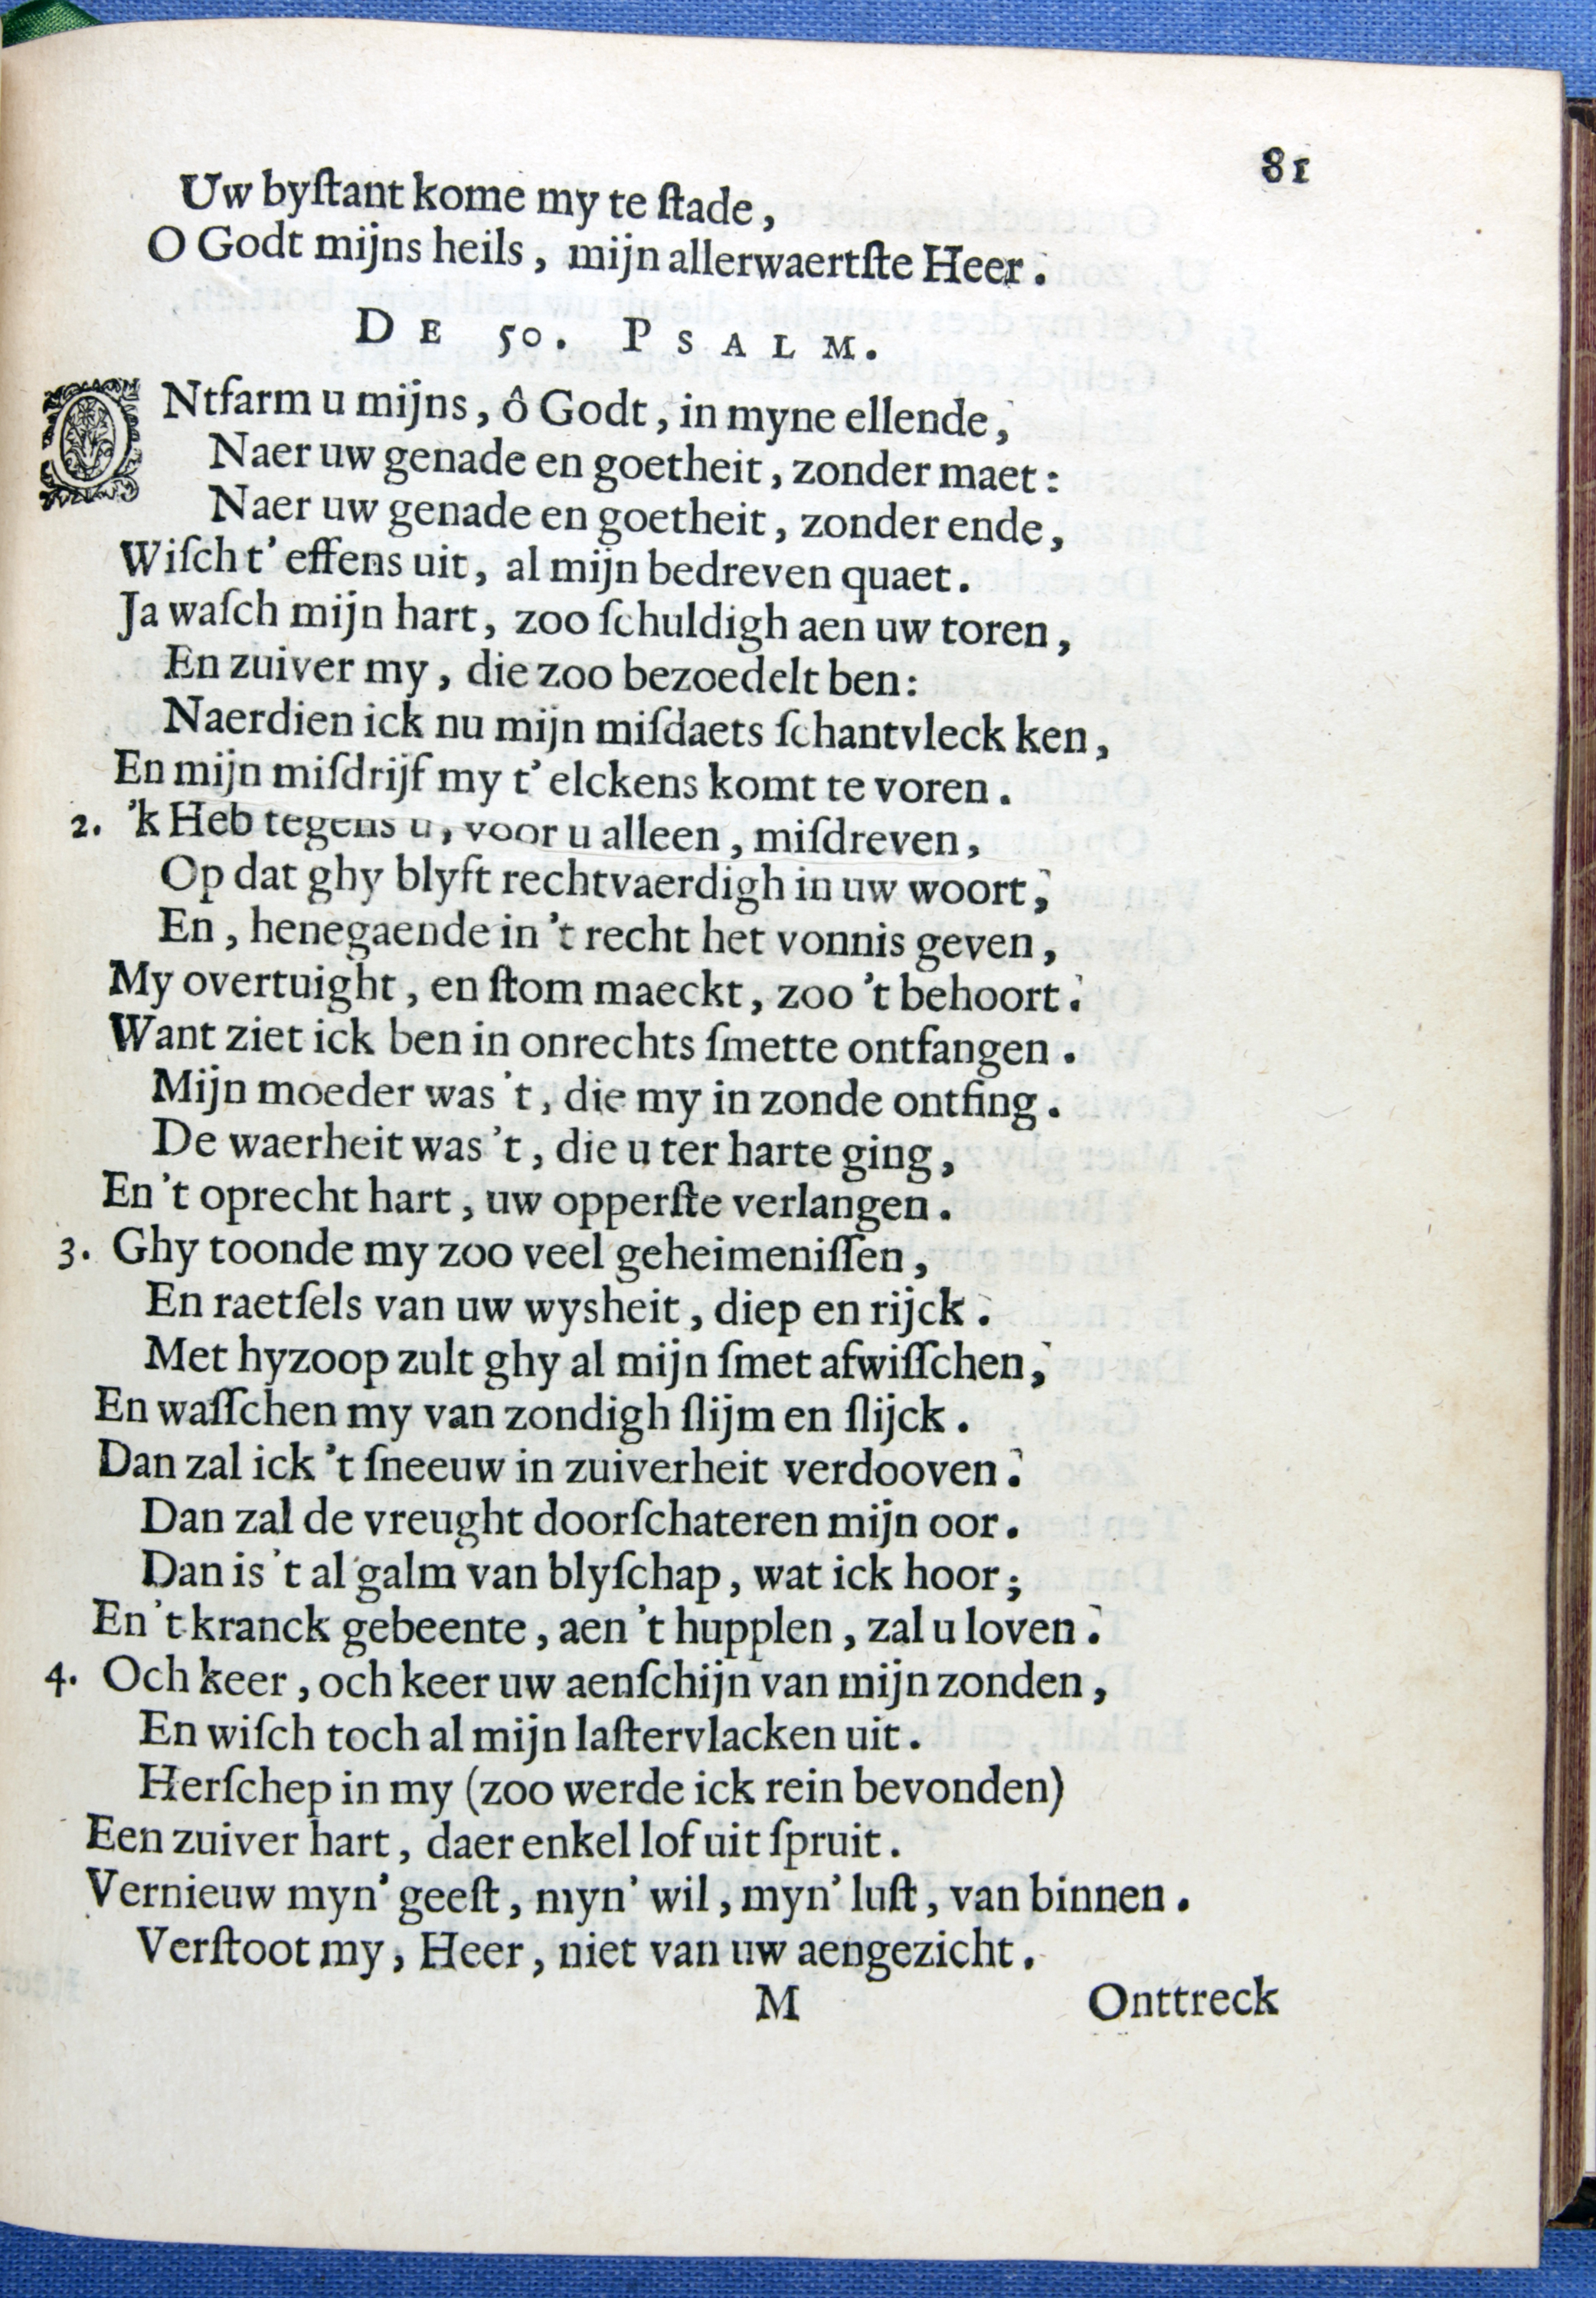 81
Uw byſtant kome my te ſtade,
O Godt mijns heils, mijn allerwaertſte Heer.
DE 50. PSALM.
ONtfarm u mijns, ô Godt, in myne ellende,
Naer uw genade en goetheit, zonder maet:
Naer uw genade en goetheit, zonder ende,
Wiſch t' effens uit, al mijn bedreven quaet.
Ja waſch mijn hart, zoo ſchuldigh aen uw toren,
En zuiver my, die zoo bezoedelt ben:
Naerdien ick nu mijn miſdaets ſchantvleck ken,
En mijn miſdrijf my t' elckens komt te voren.
2. 'k Heb tegens u, voor u alleen, miſdreven,
Op dat ghy blyft rechtvaerdigh in uw woort,
En, henegaende in 't recht het vonnis geven,
My overtuight, en ſtom maeckt, zoo 't behoort.
Want ziet ick ben in onrechts ſmette ontfangen.
Mijn moeder was 't, die my in zonde ontfing.
De waerheit was 't, die u ter harte ging,
En 't oprecht hart, uw opperſte verlangen.
3. Ghy toonde my zoo veel geheimeniſſen,
En raetſels van uw wysheit, diep en rijck.
Met hyzoop zult ghy al mijn ſmet afwiſſchen,
En waſſchen my van zondigh ſlijm en ſlijck.
Dan zal ick 't ſneeuw in zuiverheit verdooven.
Dan zal de vreught doorſchateren mijn oor.
Dan is 't al galm van blyſchap, wat ick hoor;
En 't kranck gebeente, aen 't hupplen, zal u loven.
4. Och keer, och keer uw aenſchijn van mijn zonden,
En wiſch toch al mijn laſtervlacken uit.
Herſchep in my (zoo werde ick rein bevonden)
Een zuiver hart, daer enkel lof uit ſpruit.
Vernieuw myn' geeſt, myn' wil, myn' luſt, van binnen.
Verſtoot my, Heer, niet van uw aengezicht.
M Onttreck